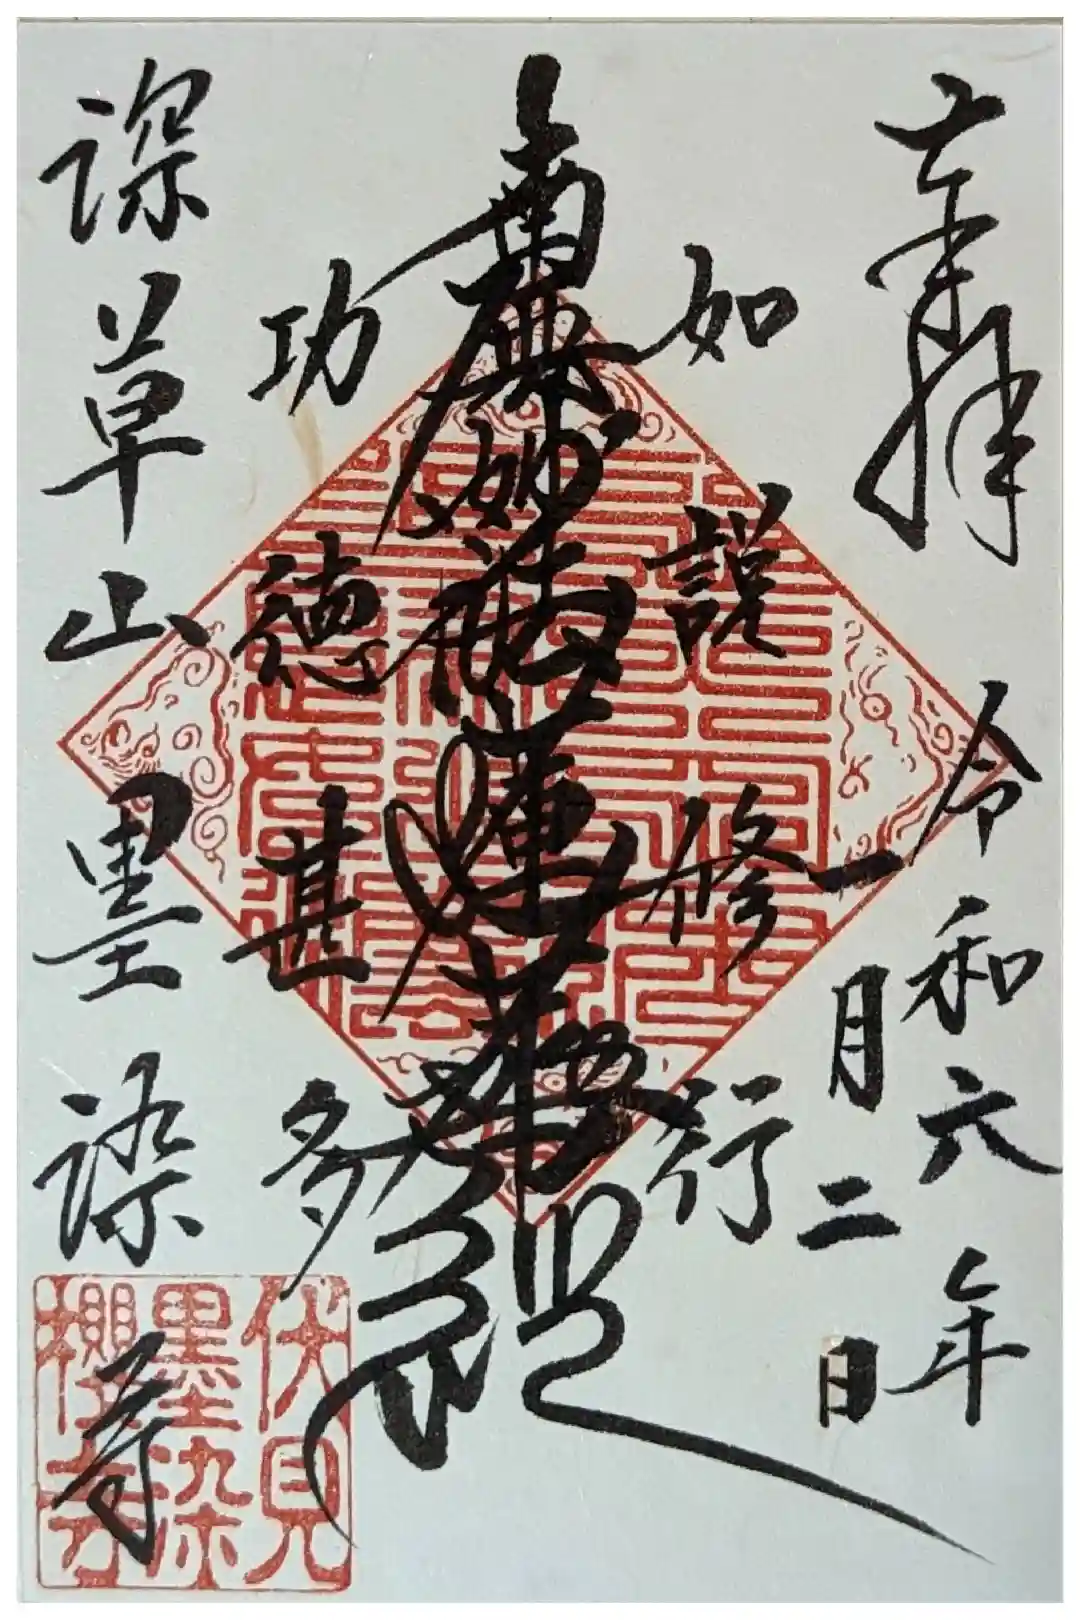 奉拝
令和六年
一月二日
如説修行
南無妙法蓮華経
功徳甚多
深草山墨染寺
伏見
墨染
櫻寺